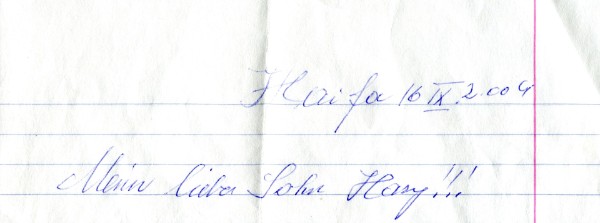 Haifa 16 IX 2.004
Mein lieber Sohn Hary!!!